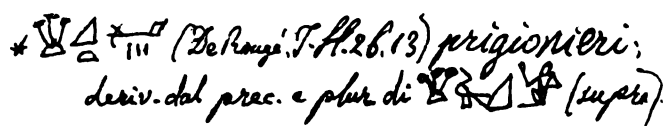 * (De Rougé, I. H. 26. 13) prigionieri;
deriv. dal prec. e plur. di (supra).